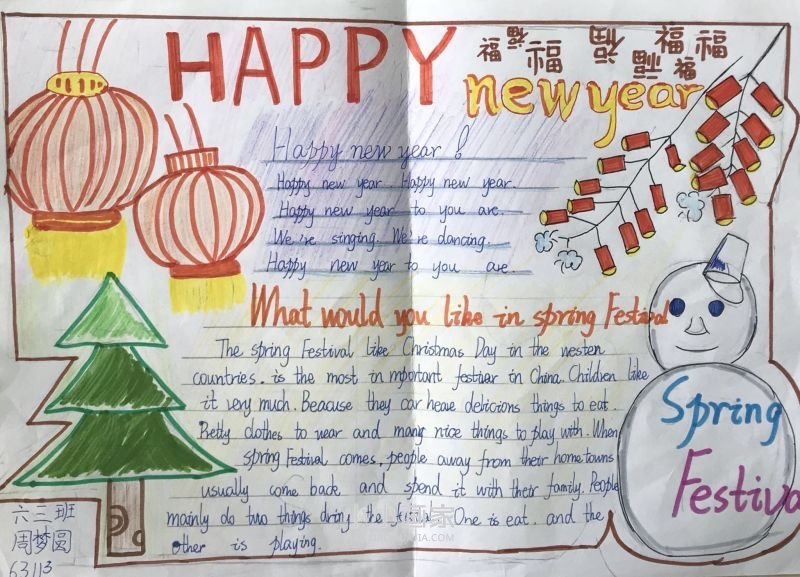 HAPPY
福 福 福 福 福 福 福 福
new year
Happy new year !
Happy new year. Happy new year.
Happy new year to you are.
We're singing. We're dancing.
Happy new year to you are.
What would you like in spring Festival
The spring Festival like Christmas Day in the westen
countries. is the most in mportant festiver in China. Children like
it very much. Beacause they car heave delicions things to eat.
Pretty clothes to wear and many nice things to play with. When
spring Festival comes, people away from their home towns
usually come back and spend it with their family. People
mainly do two things dring the One is eat. and the
other is playing.
Spring
Festival
六三班
周梦圆
63113